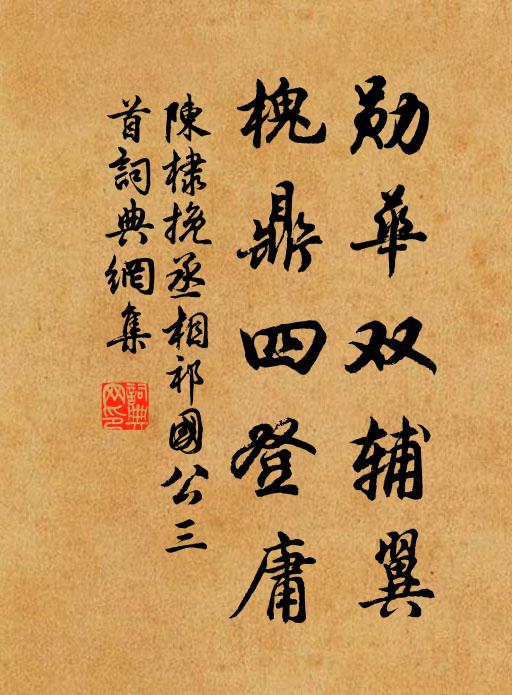 勋華双辅翼
槐鼎四登庸
陳棣挽丞相祁國公三
首詞典網集
詞典
网印